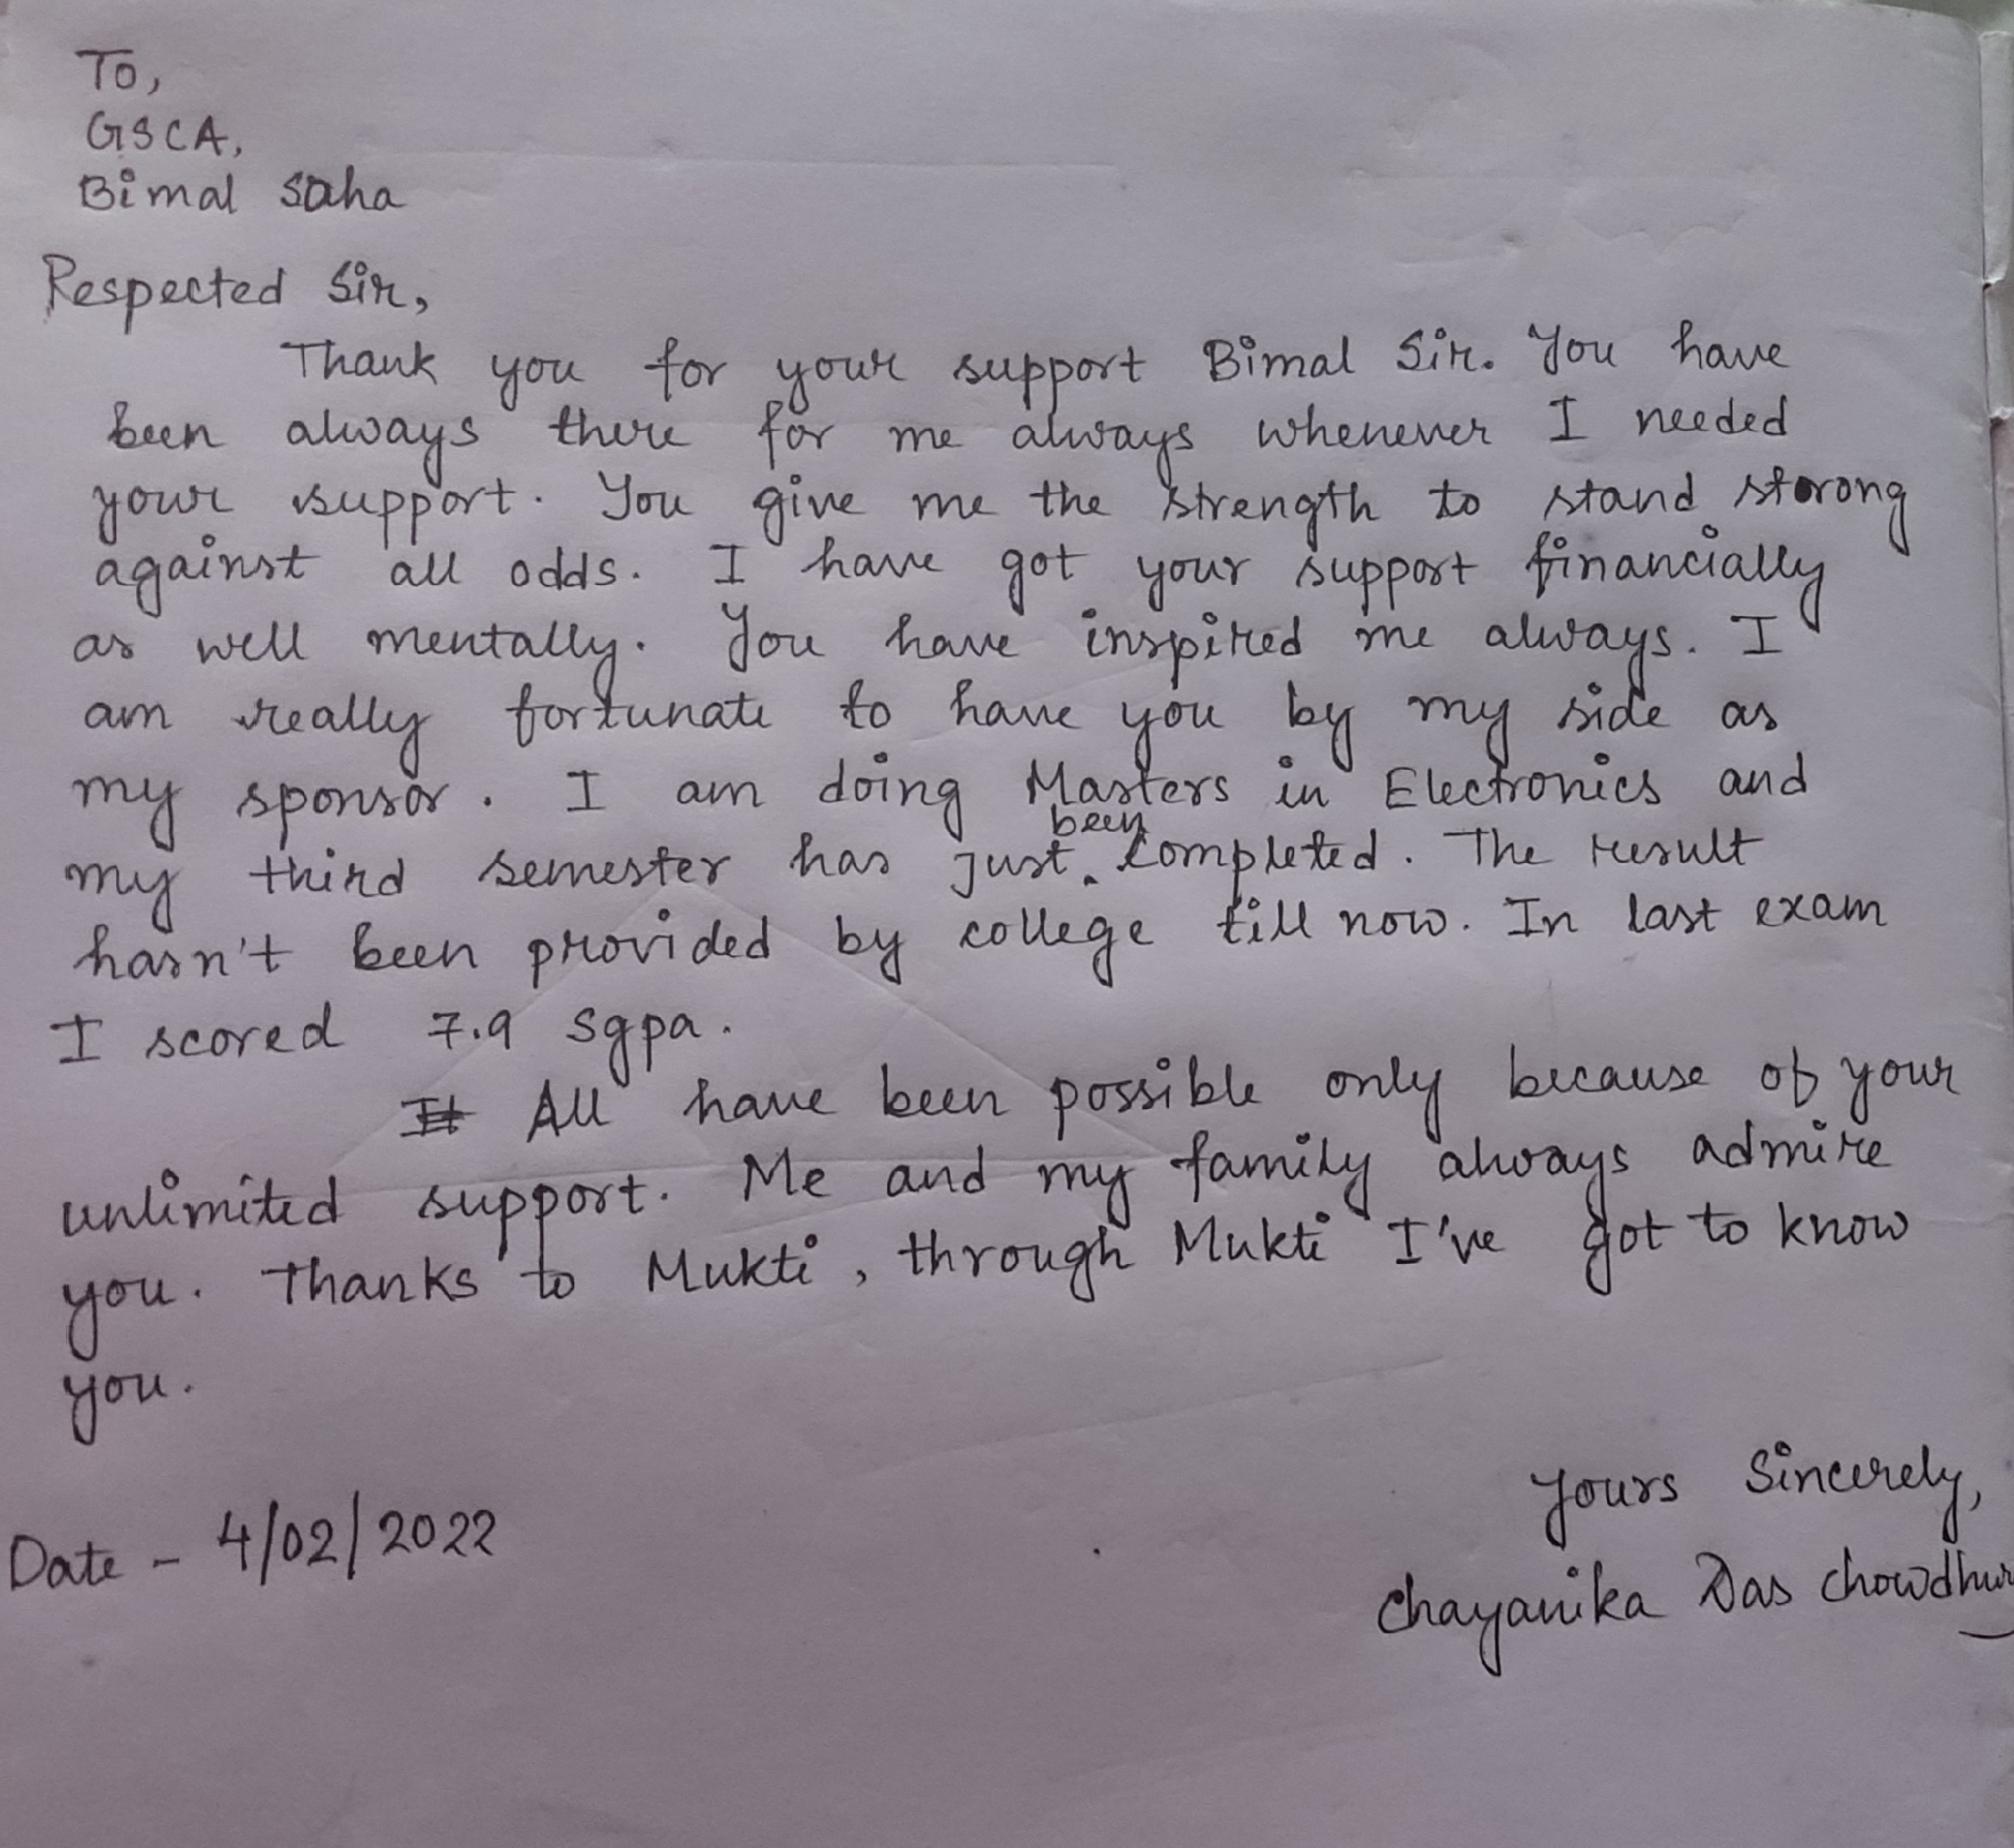 To,
GSCA,
Bimal Saha
Respected Sir,
Thank you for your support Bimal Sir. You have
been always there for me always whenever I needed
your support. You give me the strength to stand strong
against all odds. I have got your support financially
as well mentally. You have inspired me always. I
am really fortunate to have you by my side as
my sponsor. I am doing Masters in Electronics and
my third semester has just been completed. The result
hasn't been provided by college till now. In last exam
I scored 7.9 sgpa.
It All have been possible only because of your
unlimited support. Me and my family always admire
you. Thanks to Mukti, through Mukti I've got to know
you.
Yours Sincerely,
Date - 4/02/2022
Chayanika Das Chowdhur